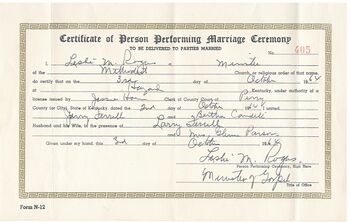 Certificate of Person Performing Marriage Ceremony
TO BE DELIVERED TO PARTIES MARRIED
No. 405
I, Leslie M. Rogers a Minister
of the Methodist Church, or religious order of that name,
do certify that on the 3rd day of October 1964
at Hazard Kentucky, under authority of a
license issued by Clerk of County Court of Perry
County (or City), State of Kentucky, dated the 2nd day of October 1964
Terrill and Bertha
Husband and Wife, in the presence of Larry Terrill
and Mrs.
Given under my hand this 3rd day of October 1964
Leslie M. Rogers
Person Performing Ceremony, Sign Here
Minister of Gospel
Title of Office
Form N-12